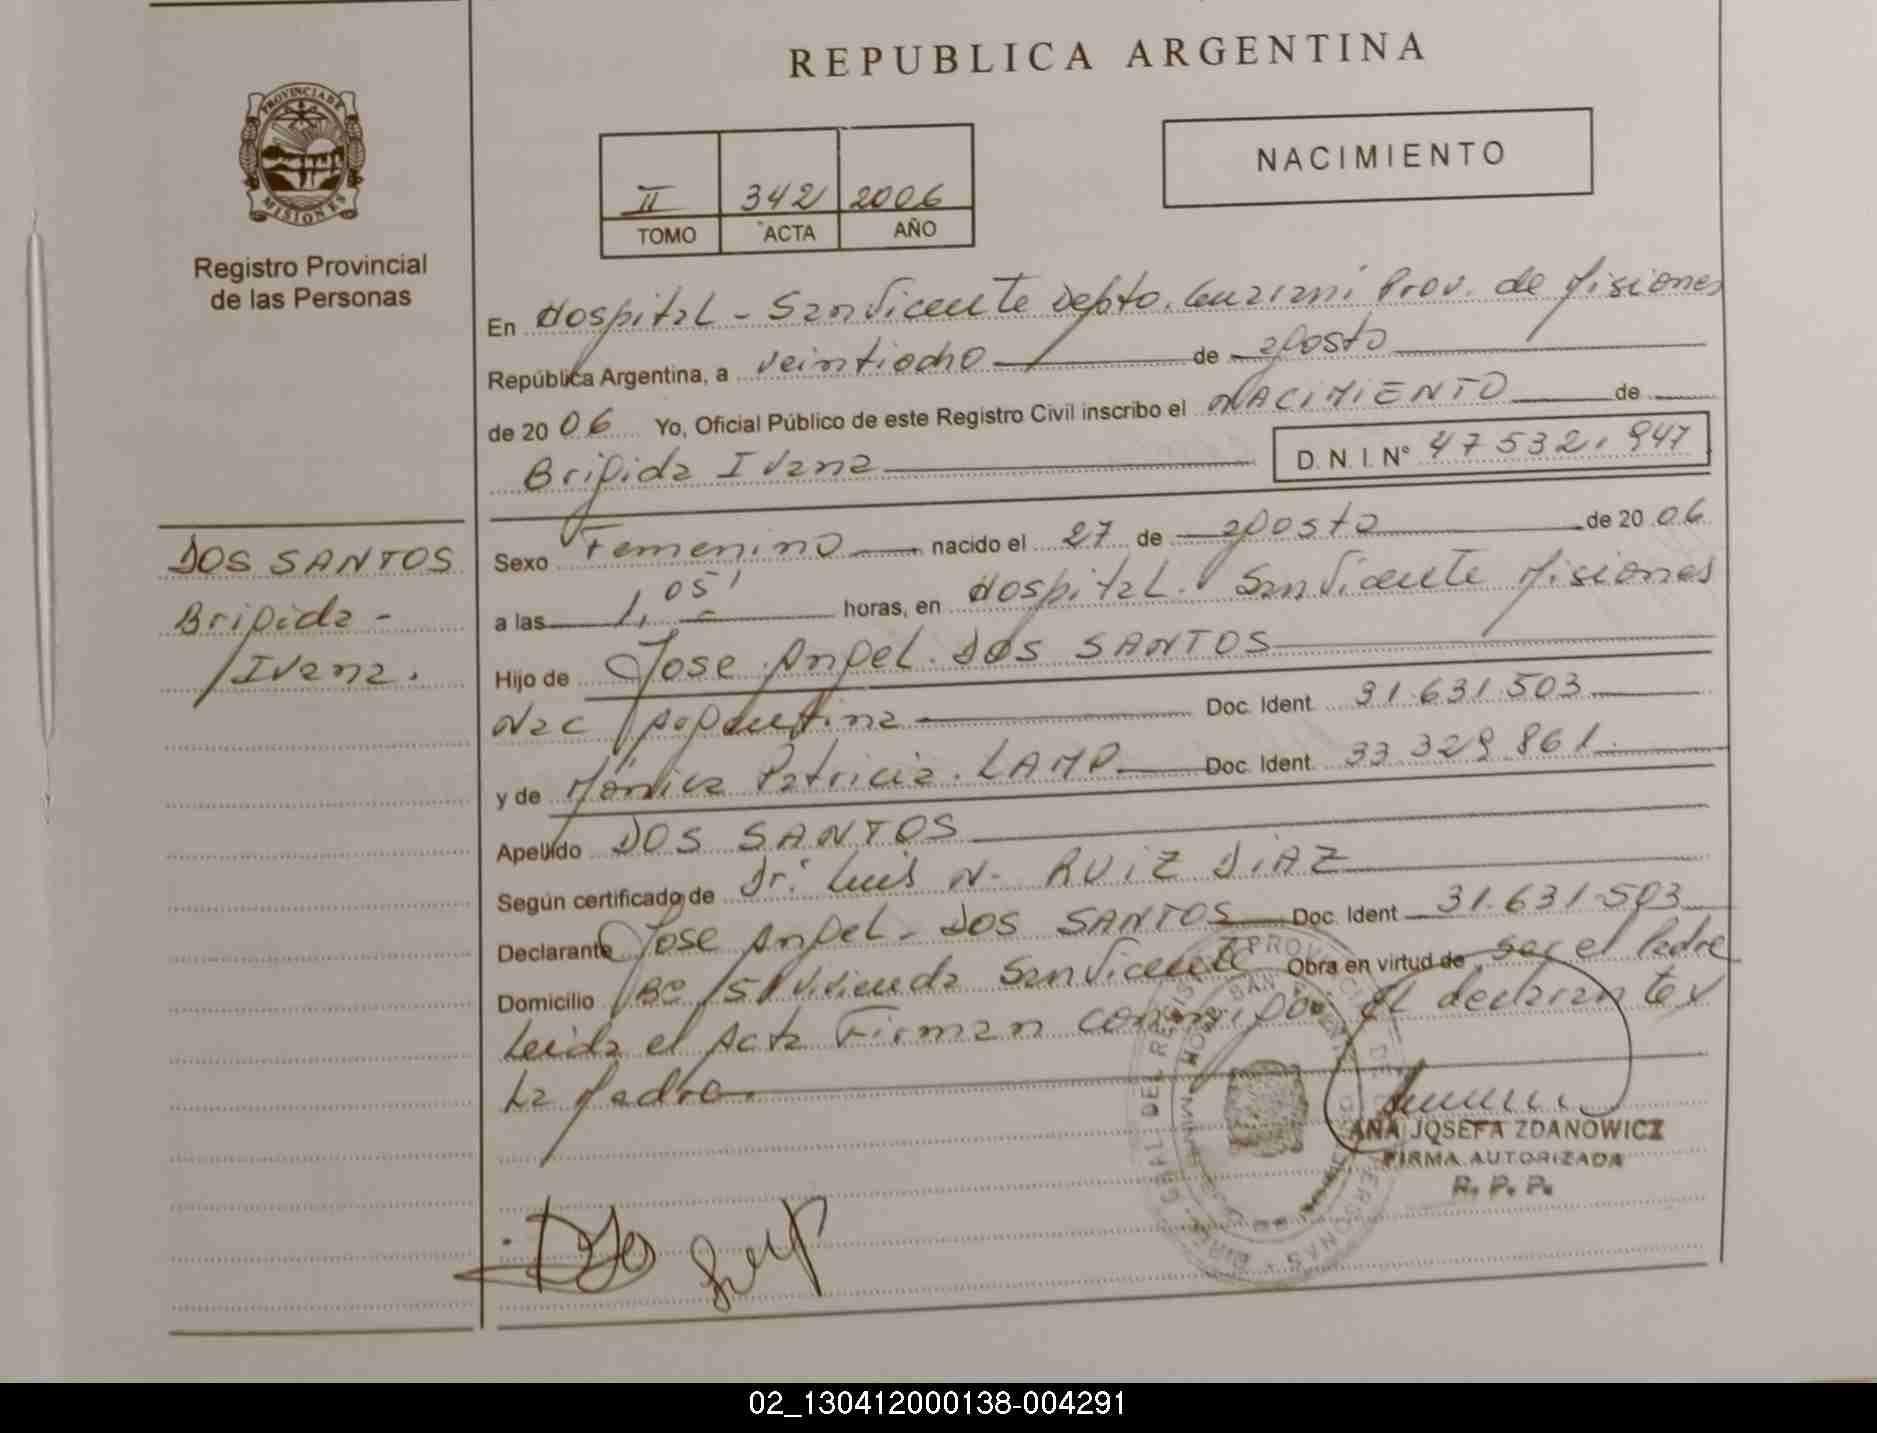 REPUBLICA ARGENTINA
PROVINCIA DE
MISIONES
Registro Provincial
de las Personas
II 342 2006
TOMO ACTA AÑO
NACIMIENTO
En Hospital - San Vicente Depto. Guaraní Prov. de Misiones
República Argentina, a veintiocho de agosto
de 2006 Yo, Oficial Público de este Registro Civil inscribo el NACIMIENTO de
Brigida Ivana D. N. I. N° 47532.947
DOS SANTOS
Brigida -
Ivana.
Sexo Femenino nacido el 27 de agosto de 2006
a las 1,05' horas, en Hospital. San Vicente Misiones
Hijo de Jose Angel. DOS SANTOS
Nac Argentina Doc. Ident. 31.631.503
y de Mónica Patricia. LAMP. Doc. Ident. 33 329.861
Apellido DOS SANTOS
Según certificado de Dr. Luis N. RUIZ DIAZ
Declarante Jose Angel - DOS SANTOS Doc. Ident 31.631.503
Domicilio Bº Vivienda San Vicente Obra en virtud de ser el Padre
Leida el Acta Firman conmigo el declarante y
La Madre.
ANA JOSEFA ZDANOWICZ
FIRMA AUTORIZADA
R. P. P.
02_130412000138-004291